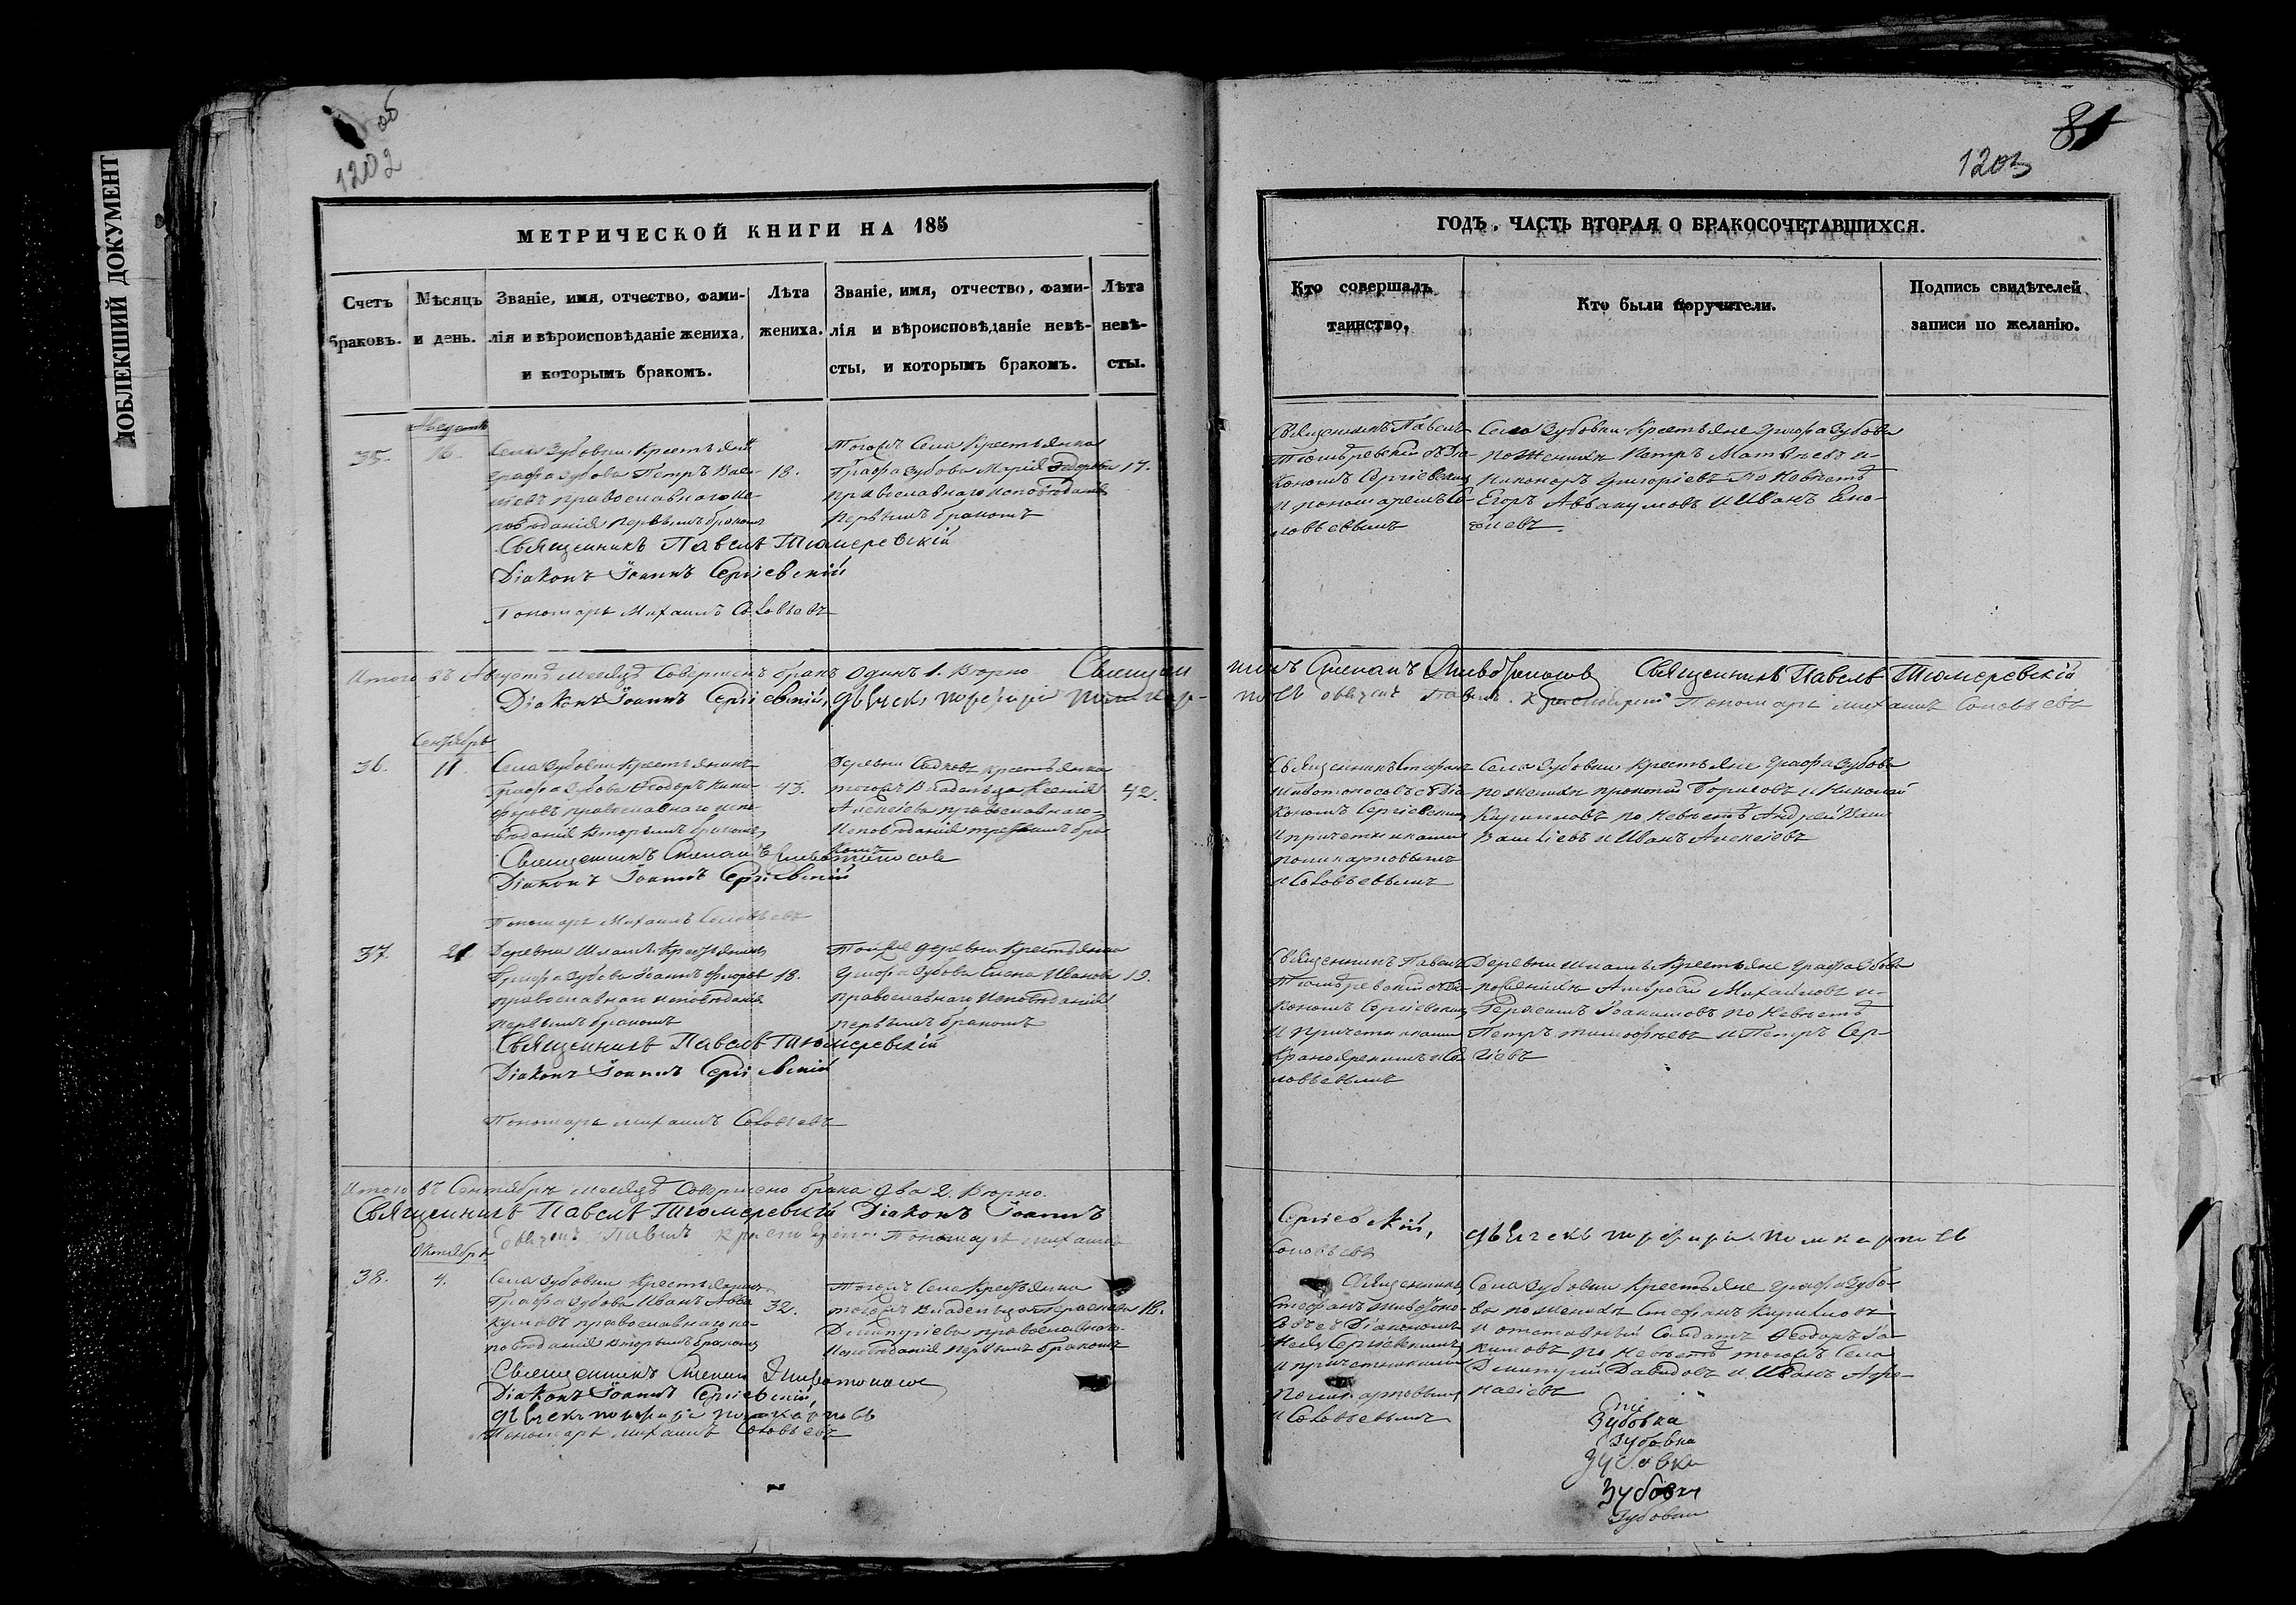 ЮБЛЕКШИЙ ДОКУМЕНТ
об
1202
МЕТРИЧЕСКОЙ КНИГИ НА 185
Счетъ браковъ.
Мѣсяцъ и день.
Званіе, имя, отчество, фами-
лія и вѣроисповѣданіе жениха,
и которымъ бракомъ.
Лѣта
жениха.
Званіе, имя, отчество, фами-
лія и вѣроисповѣданіе невѣ-
сты, и которымъ бракомъ.
Лѣта
невѣ-
сты.
Августъ
35.
16.
Села Зубовки Крестьянинъ
Графа Зубова Петръ Васи-
ліевъ православнаго ис-
повѣданія первымъ бракомъ
18.
Тогожъ Села Крестьянка
Графа Зубова Марія Ѳедорова
православнаго исповѣданія
первымъ бракомъ
17.
Священникъ Павелъ Тюмеревскій
Діаконъ Іоаннъ Сергіевскій
Пономарь Михаилъ Соловьевъ
Итого въ Августѣ месяцѣ Совершенъ бракъ одинъ 1. Вѣрно Священ
Діаконъ Іоаннъ Сергіевскій, дьячекъ порфирій поликар-
Сентябрь
36.
11.
Села Зубовки Крестьянинъ
Графа Зубова Ѳеодоръ Ники-
форовъ православнаго испо-
вѣданія вторымъ бракомъ
43.
Деревни крестьянка
тогожъ Владельца Ксенія
Алексіева православнаго
исповѣданія третьимъ бра-
комъ
42.
Священникъ Стефанъ Животоносовъ
Діаконъ Іоаннъ Сергіевскій
Пономарь Михаилъ Соловьевъ
37.
21
Деревни Крестьянинъ
Графа Зубова Іоаннъ
православнаго исповѣданія
первымъ бракомъ
18.
Тойже деревни Крестьянка
Графа Зубова Елена Иванова
православнаго исповѣданія
первымъ бракомъ
19.
Священникъ Павелъ Тюмеревскій
Діаконъ Іоаннъ Сергіевскій
Пономарь михаилъ Соловьевъ
Итого въ Сентябрѣ месяцѣ Совершено брака два 2. Вѣрно.
Священникъ Павелъ Тюмеревскій Діаконъ Іоаннъ
Павелъ Пономарь михаилъ
Октябрь
38.
4.
Села Зубовки Крестьянинъ
Графа Зубова Иванъ Авва-
кумовъ православнаго ис-
повѣданія вторымъ бракомъ
32.
Тогожъ Села Крестьянка
тогожъ Владельца
Димитріева православнаго
исповѣданія первымъ бракомъ
18.
Священникъ Стефанъ Животоносовъ
Діаконъ Іоаннъ Сергіевскій,
дьячекъ порфирій поликарповъ
Пономарь михаилъ Соловьевъ
81
1203
ГОДЪ, ЧАСТЬ ВТОРАЯ О БРАКОСОЧЕТАВШИХСЯ.
Кто совершалъ
таинство,
Кто были поручители.
Подпись свидѣтелей
записи по желанію.
Священникъ Павелъ
Тюмеревскій съ Діа-
кономъ Сергіевскимъ
и пономаремъ Со-
ловьевымъ
Села Зубовки Крестьяне Графа Зубова
по женихѣ Петръ Матвѣевъ и
Никоноръ Григоріевъ По Невѣстѣ
Егоръ Аввакумовъ и Иванъ
никъ Стефанъ Животоносовъ Священникъ Павелъ Тюмеревскій
повъ Павелъ Пономарь михаилъ Соловьевъ
Священникъ Стефанъ
Животоносовъ съ Діа-
кономъ Сергіевскимъ
и причетниками
поликарповымъ
и Соловьевымъ
Села Зубовки Крестьяне Графа Зубова
по женихѣ прокопій Борисовъ и Николай
Кириловъ по невѣстѣ Андрей
Василіевъ и Иванъ Алексіевъ
Священникъ Павелъ
Тюмеревскій съ Діа-
кономъ Сергіевскимъ
и Причетниками
и Со-
ловьевымъ
Деревни Крестьяне Графа Зубова
по женихѣ Амвросій Михайловъ и
Іоакимовъ по невѣстѣ
Петръ тимофѣевъ и Петръ Сер-
гіевъ
Сергіевскій, дьячекъ порфирій поликарповъ
Соловьевъ
Священникъ
Стефанъ Животоно-
совъ съ Діакономъ
Сергіевскимъ
и причетниками
поликарповымъ
и Соловьевымъ
Села Зубовки Крестьяне Графа Зубо-
ва по женихѣ Стефанъ Кириловъ
и отставный Солдатъ Ѳеодоръ Іа-
кимовъ по невѣстѣ тогожъ Села
Димитрій Давидовъ и Иванъ Афа-
насіевъ
Зубовка
Зубовка
Зубовки
Зубовки
Зубовки